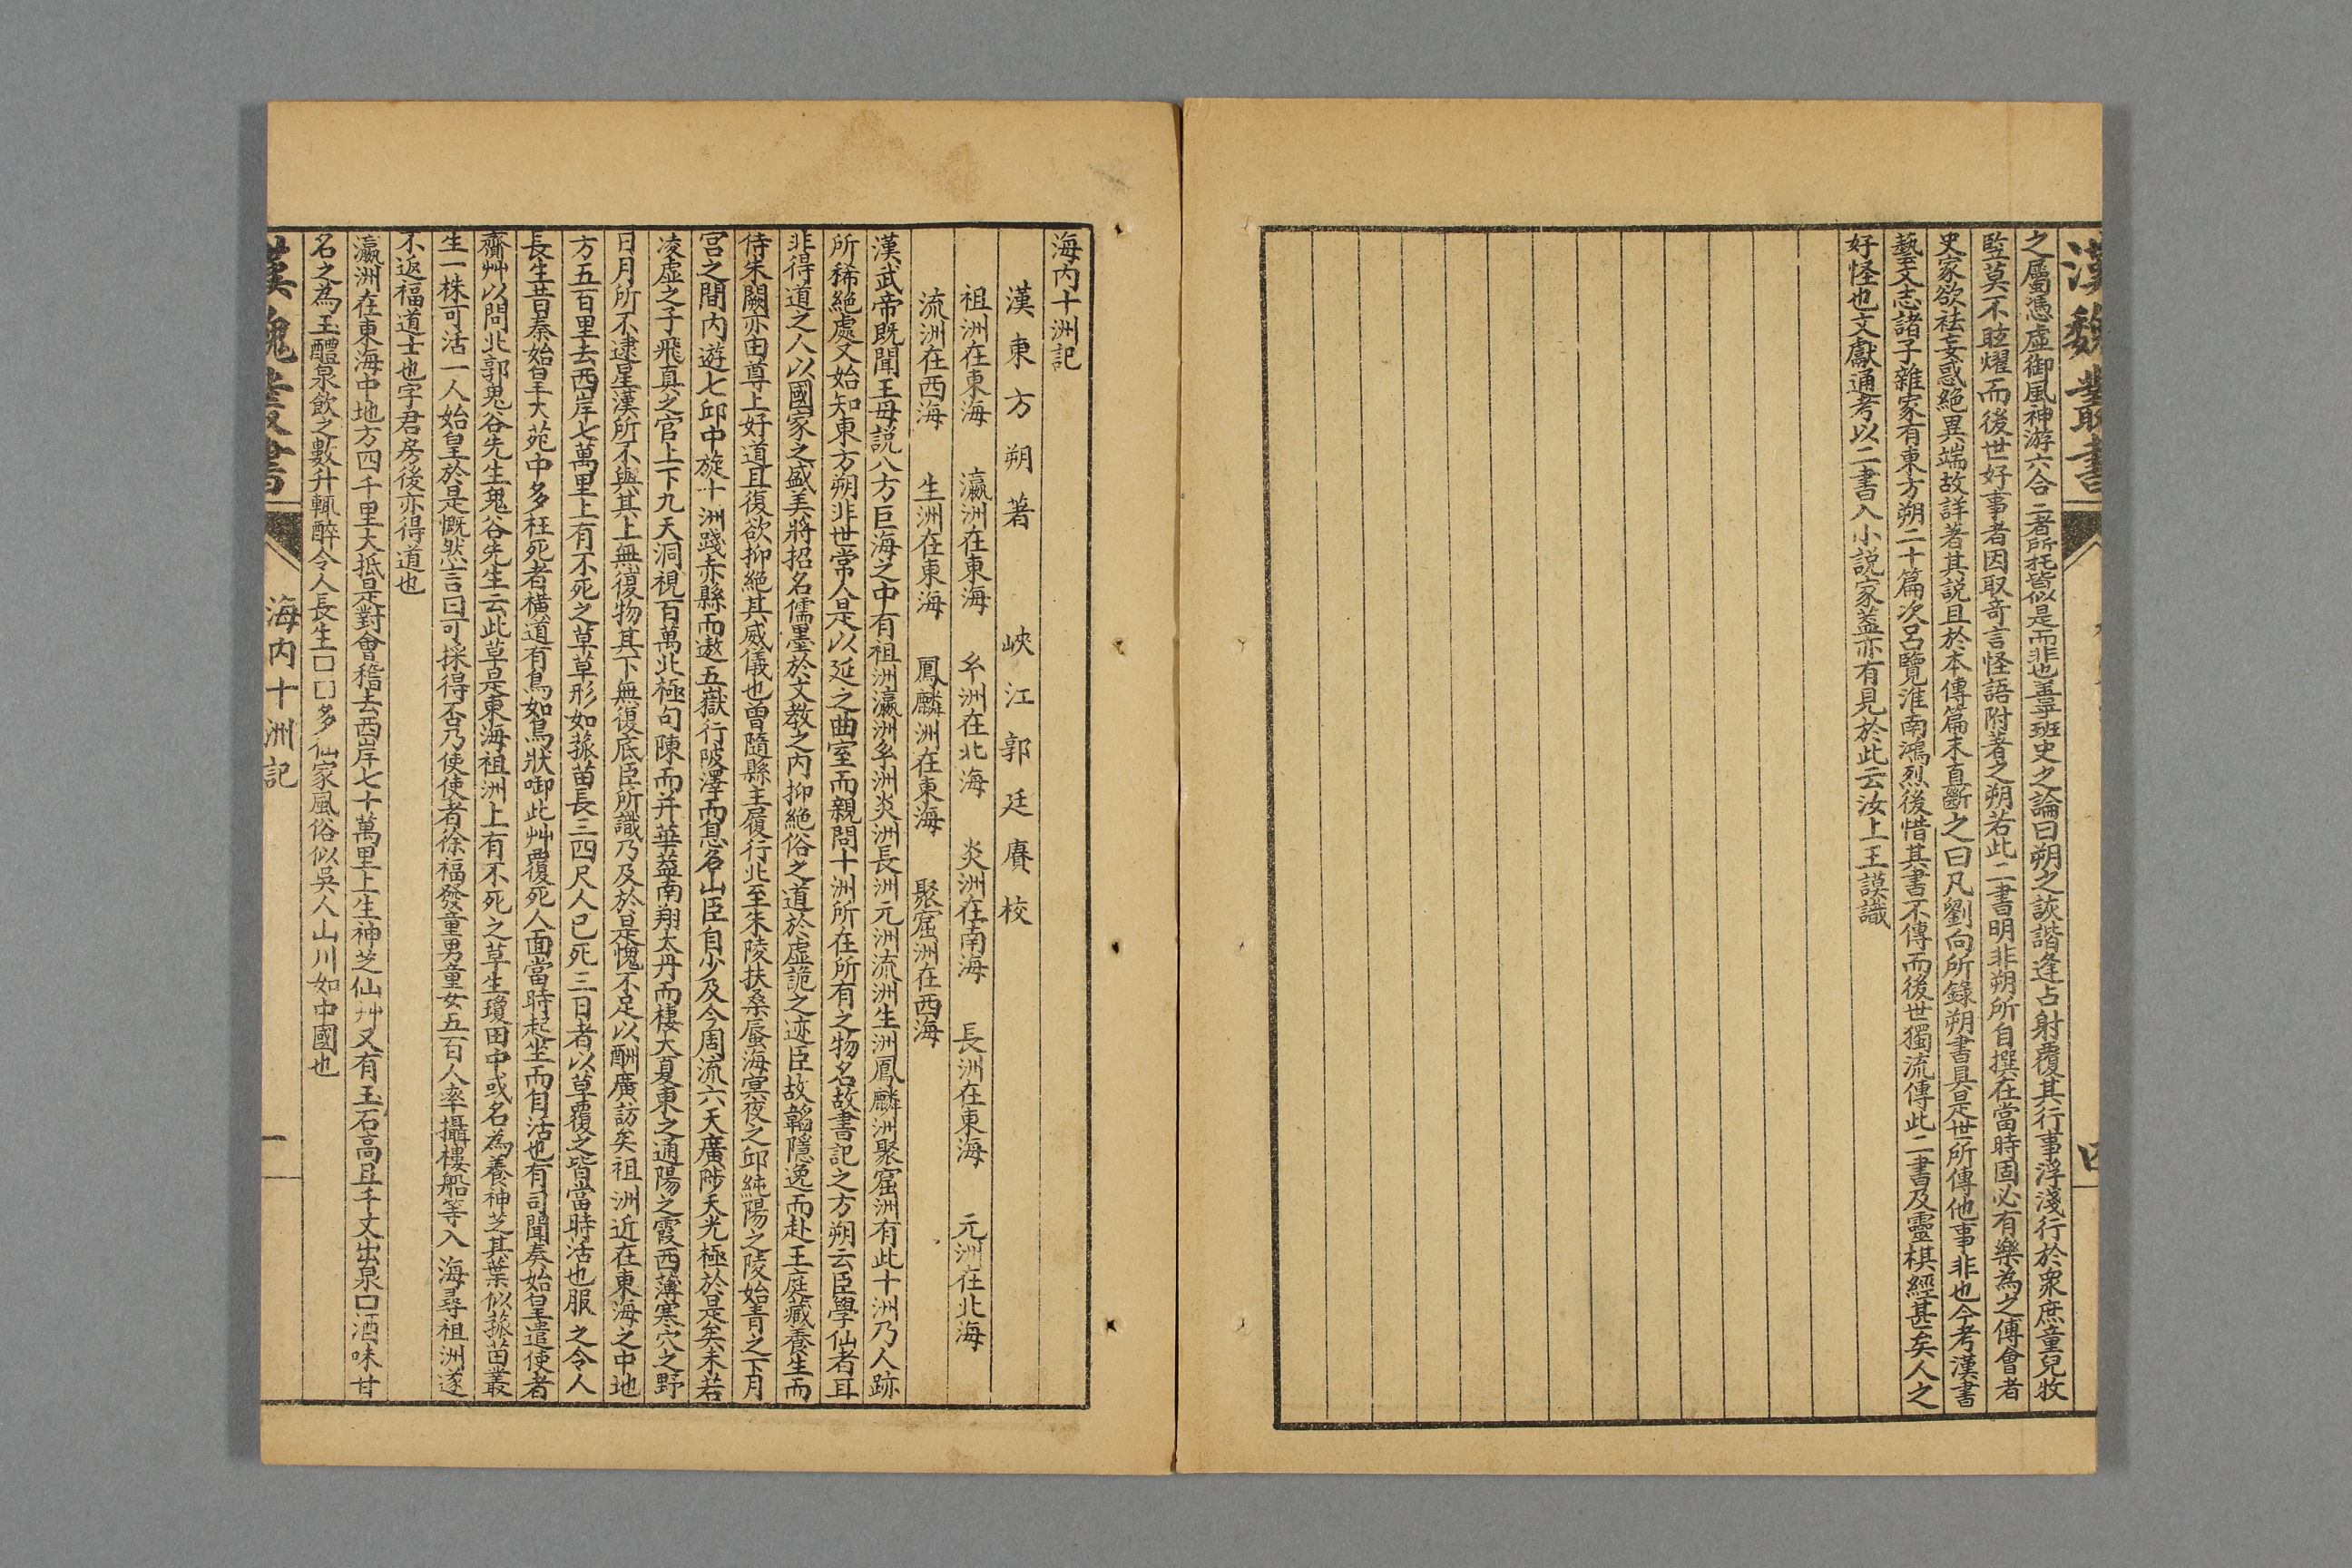 漢魏叢書
之屬憑虛御風神游六合二者所托皆似是而非也善乎班史之論曰朔之詼諧逢占射覆其行事浮淺行於衆庶童兒牧
豎莫不眩燿而後世好事者因取奇言怪語附著之朔若此二書明非朔所自撰在當時固必有樂為之傅會者
史家欲袪妄惑絕異端故詳著其説且於本傳篇末直斷之曰凡劉向所錄朔書具是世所傳他事非也今考漢書
藝文志諸子雜家有東方朔二十篇次吕覽淮南鴻烈後惜其書不傳而後世獨流傳此二書及靈棋經甚矣人之
好怪也文獻通考以二書入小説家葢亦有見於此云汝上王謨識
海内十洲記
漢東方朔著 峽江郭廷賡校
祖洲在東海 瀛洲在東海 𤣥洲在北海 炎洲在南海 長洲在東海 元洲在北海
流洲在西海 生洲在東海 鳳麟洲在東海 聚窟洲在西海
漢武帝既聞王母説八方巨海之中有祖洲瀛洲𤣥洲炎洲長洲元洲流洲生洲鳳麟洲聚窟洲有此十洲乃人跡
所稀絕處又始知東方朔非世常人是以延之曲室而親問十洲所在所有之物名故書記之方朔云臣學仙者耳
非得道之人以國家之盛美將招名儒墨於文教之内抑絕俗之道於虛詭之迹臣故韜隱逸而赴王庭藏養生而
侍朱闕亦由尊上好道且復欲抑絕其威儀也曾隨縣主履行北至朱陵扶桑蜃海冥夜之邱純陽之陵始青之下月
宫之間内遊七邱中旋十洲踐赤縣而遨五嶽行陂澤而息名山臣自少及今周流六天廣陟天光極於是矣未若
凌虛之子飛真之官上下九天洞視百萬北極句陳而并華葢南翔太丹而棲大夏東之通陽之霞西薄寒穴之野
日月所不逮星漢所不與其上無復物其下無復底臣所識乃及於是愧不足以酬廣訪矣祖洲近在東海之中地
方五百里去西岸七萬里上有不死之草草形如菰苗長三四尺人已死三日者以草覆之皆當時活也服之令人
長生昔秦始皇大苑中多枉死者橫道有鳥如烏狀啣此艸覆死人面當時起坐而自活也有司聞奏始皇遣使者
齎艸以問北郭鬼谷先生鬼谷先生云此草是東海祖洲上有不死之草生瓊田中或名為養神芝其葉似菰苗叢
生一株可活一人始皇於是慨然言曰可採得否乃使使者徐福發童男童女五百人率攝樓船等入海尋祖洲遂
不返福道士也字君房後亦得道也
瀛洲在東海中地方四千里大抵是對會稽去西岸七十萬里上生神芝仙艸又有玉石高且千丈出泉口酒味甘
名之為玉醴泉飲之數升輒醉令人長生口口多仙家風俗似吳人山川如中國也
漢魏叢書
海内十洲記
一